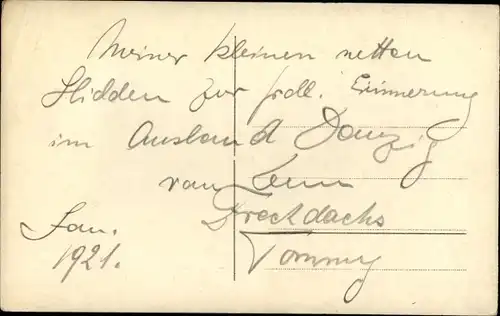 Meiner kleinen netten
Hidden zur frdl. Erinnerung
im Ausland Danzig
von Deinem
Frechdachs
Jan. Tommy
1921.